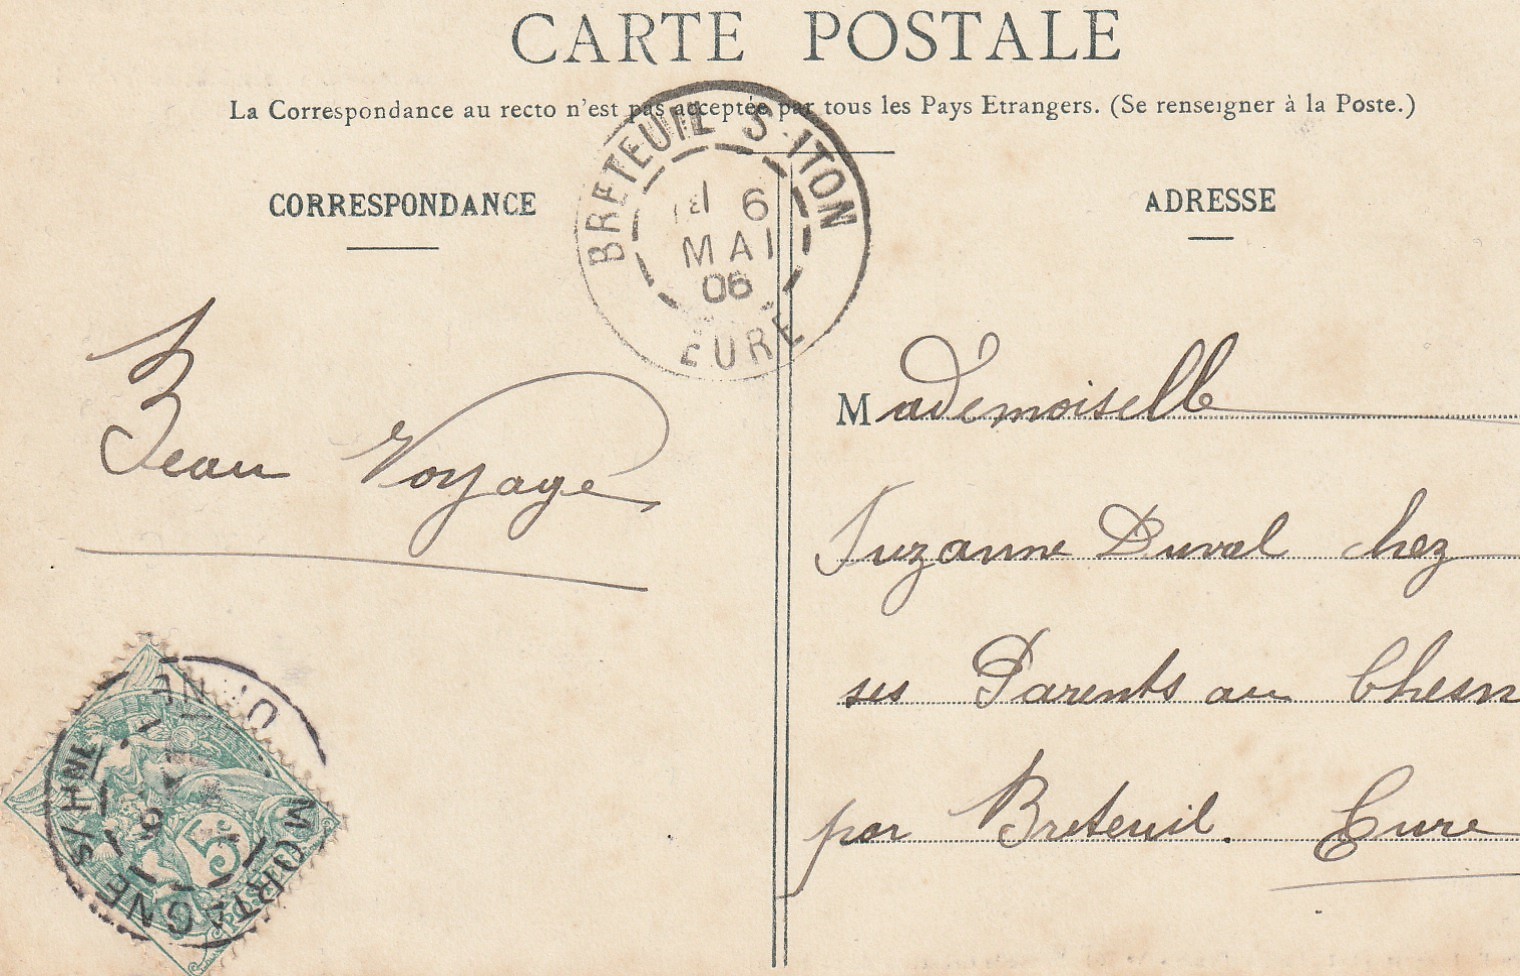 CARTE POSTALE
La Correspondance au recto n'est pas acceptée par tous les Pays Etrangers. (Se renseigner à la Poste.)
CORRESPONDANCE
ADRESSE
BRETEUIL S-ITON
6
MAI
06
EURE
Beau Voyage
Mademoiselle
Suzanne Duval chez
ses Parents au Chesn
par Breteuil. Eure
MORTAGNE S/HNE
5c